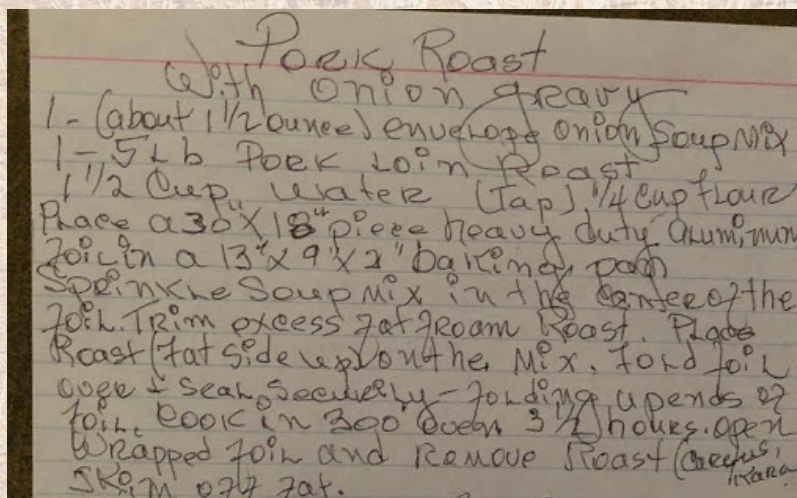 Pork Roast
With onion gravy
1 - (about 1 1/2 ounce) envelope onion Soup Mix
1 - 5 Lb Pork Loin Roast
1 1/2 Cup water (Tap) 1/4 Cup flour
Place a 30" x 18" piece heavy duty aluminum
foil in a 13" x 9" x 2" baking pan
Sprinkle Soup Mix in the center of the
foil. Trim excess fat froam Roast. Place
Roast (fat side up) on the Mix. Fold foil
over + seal securely - folding up ends of
foil. Cook in 300° oven 3 1/2 hours. open
Wrapped foil and Remove Roast (Careful,
Skim off fat.